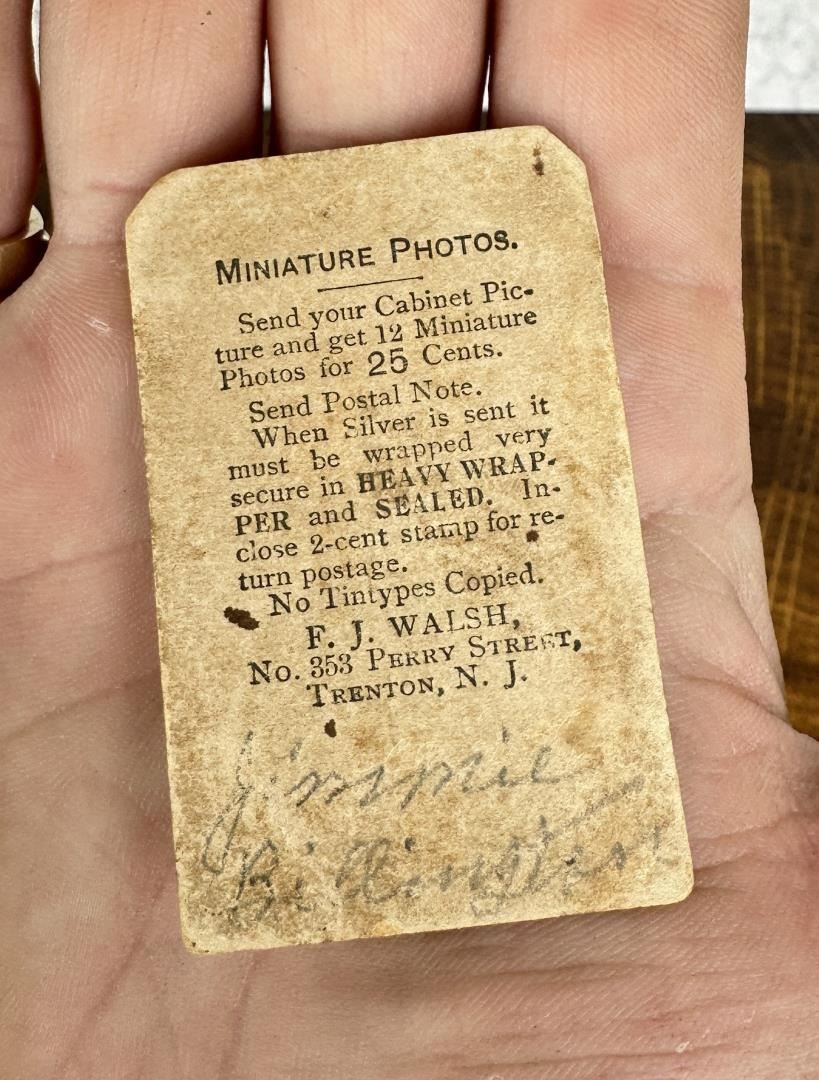 MINIATURE PHOTOS.
Send your Cabinet Pic-
ture and get 12 Miniature
Photos for 25 Cents.
Send Postal Note.
When Silver is sent it
must be wrapped very
secure in HEAVY WRAP-
PER and SEALED. In-
close 2-cent stamp for re-
turn postage.
No Tintypes Copied.
F. J. WALSH,
No. 353 PERRY STREET,
TRENTON, N. J.
Jimmie